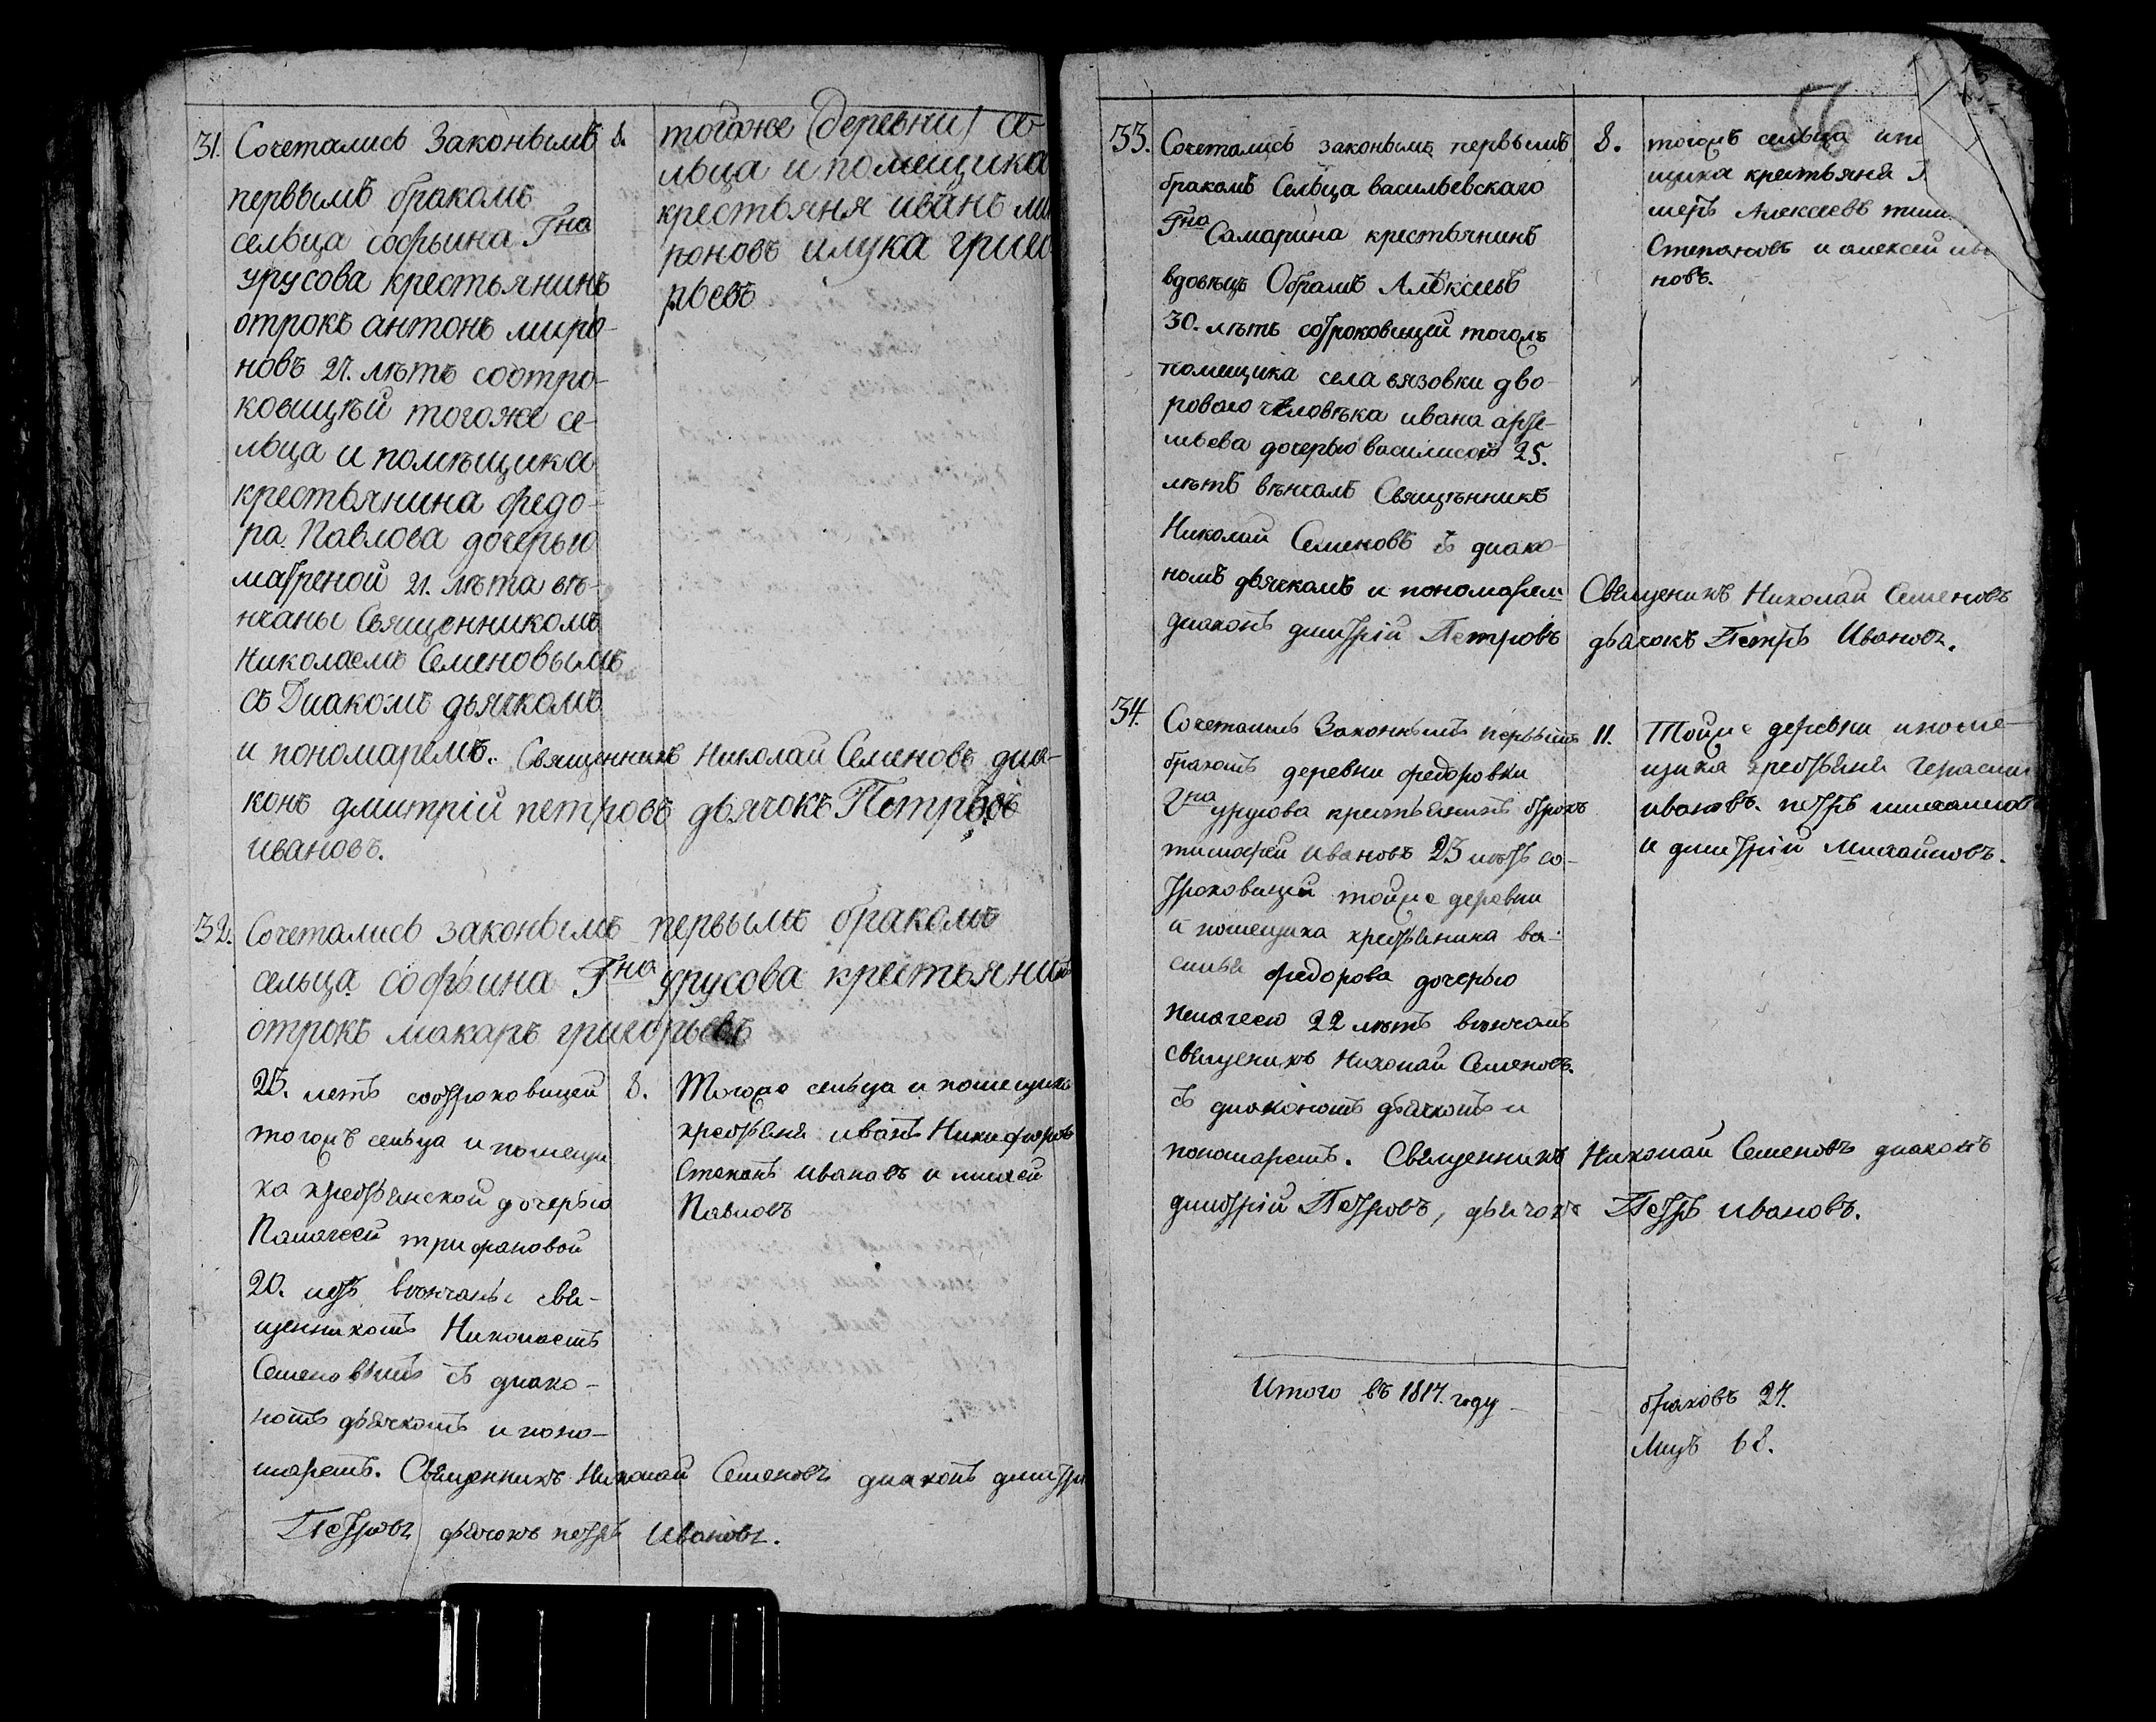 31. Сочетались Законымъ
первымъ бракомъ
сельца софьина Гна
урусова крестьянинъ
отрокъ антонъ миро-
новъ 21. лѣтъ соотро-
ковицѣй тогоже се-
льца и помѣщика
крестьянина федо-
ра Павлова дочерью
матреной 21. лѣта вѣ-
нчаны Священникомъ
Николаемъ Семеновымъ
съ Диакомъ дьячкомъ
и пономаремъ. Священникъ Николай Семеновъ диа-
конъ дмитрій петровъ дьячокъ Петръ
ивановъ.
8. тогоже (деревни) се-
льца и помещика
крестьяня иванъ ми
роновъ илука григо-
рьевъ
32. Сочетались законымъ первымъ бракомъ
сельца софьина Гна урусова крестьянинъ
отрокъ макаръ григорьевъ
25. летъ соотроковицей
тогожъ сельца и помещи
ка крестьянской дочерью
Палагеей трифановой
20. летъ вѣнчаны свя-
щенникомъ Николаемъ
Семеновымъ съ диако-
номъ дьячкомъ и поно-
маремъ. Священникъ Николай Семеновъ диаконъ дмитри
Петровъ дьячокъ петръ Ивановъ.
8. Тогоже сельца и помещика
крестьяня иванъ Никифоровъ
Степанъ ивановъ и
Павловъ
56
33. Сочетались законымъ первымъ
бракомъ Сельца васильевскаго
Гна Самарина крестьянинъ
вдовѣцъ Обрамъ Алѣксѣевъ
30. лѣтъ сотроковицей тогожъ
помещика села вязовки дво-
роваго человѣка ивана арте-
мьева дочерью василисой 25.
лѣтъ вѣнчалъ Свящѣнникъ
Николай Семеновъ съ диако-
номъ дьячкомъ и пономарем Священикъ Николай Семеновъ
диаконъ дмитрій Петровъ дьячокъ Петръ Ивановъ.
8. тогожъ сельца ипо
щика крестьяня
Алексеевъ тим
Степановъ и алексей ива
новъ.
34. Сочетались Законнымъ первымъ
бракомъ деревни федоровки
Гна урусова крестьянинъ отрокъ
тимофей Ивановъ 23 летъ со-
троковицей тойже деревни
и помещика крестьянина ва-
силья федорова дочерью
пелагеею 22 лѣтъ вѣнчалъ
священикъ Николай Семеновъ.
съ диакономъ дьячкомъ и
пономаремъ. Священникъ Николай Семеновъ диаконъ
дмитрій Петровъ, дьячокъ Петръ ивановъ.
11. Тойже деревни ипоме-
щика крестьяня герасим
ивановъ. петръ михаиловъ
и дмитрій Михайловъ.
Итого въ 1817. году
браковъ 27.
Лицъ 68.